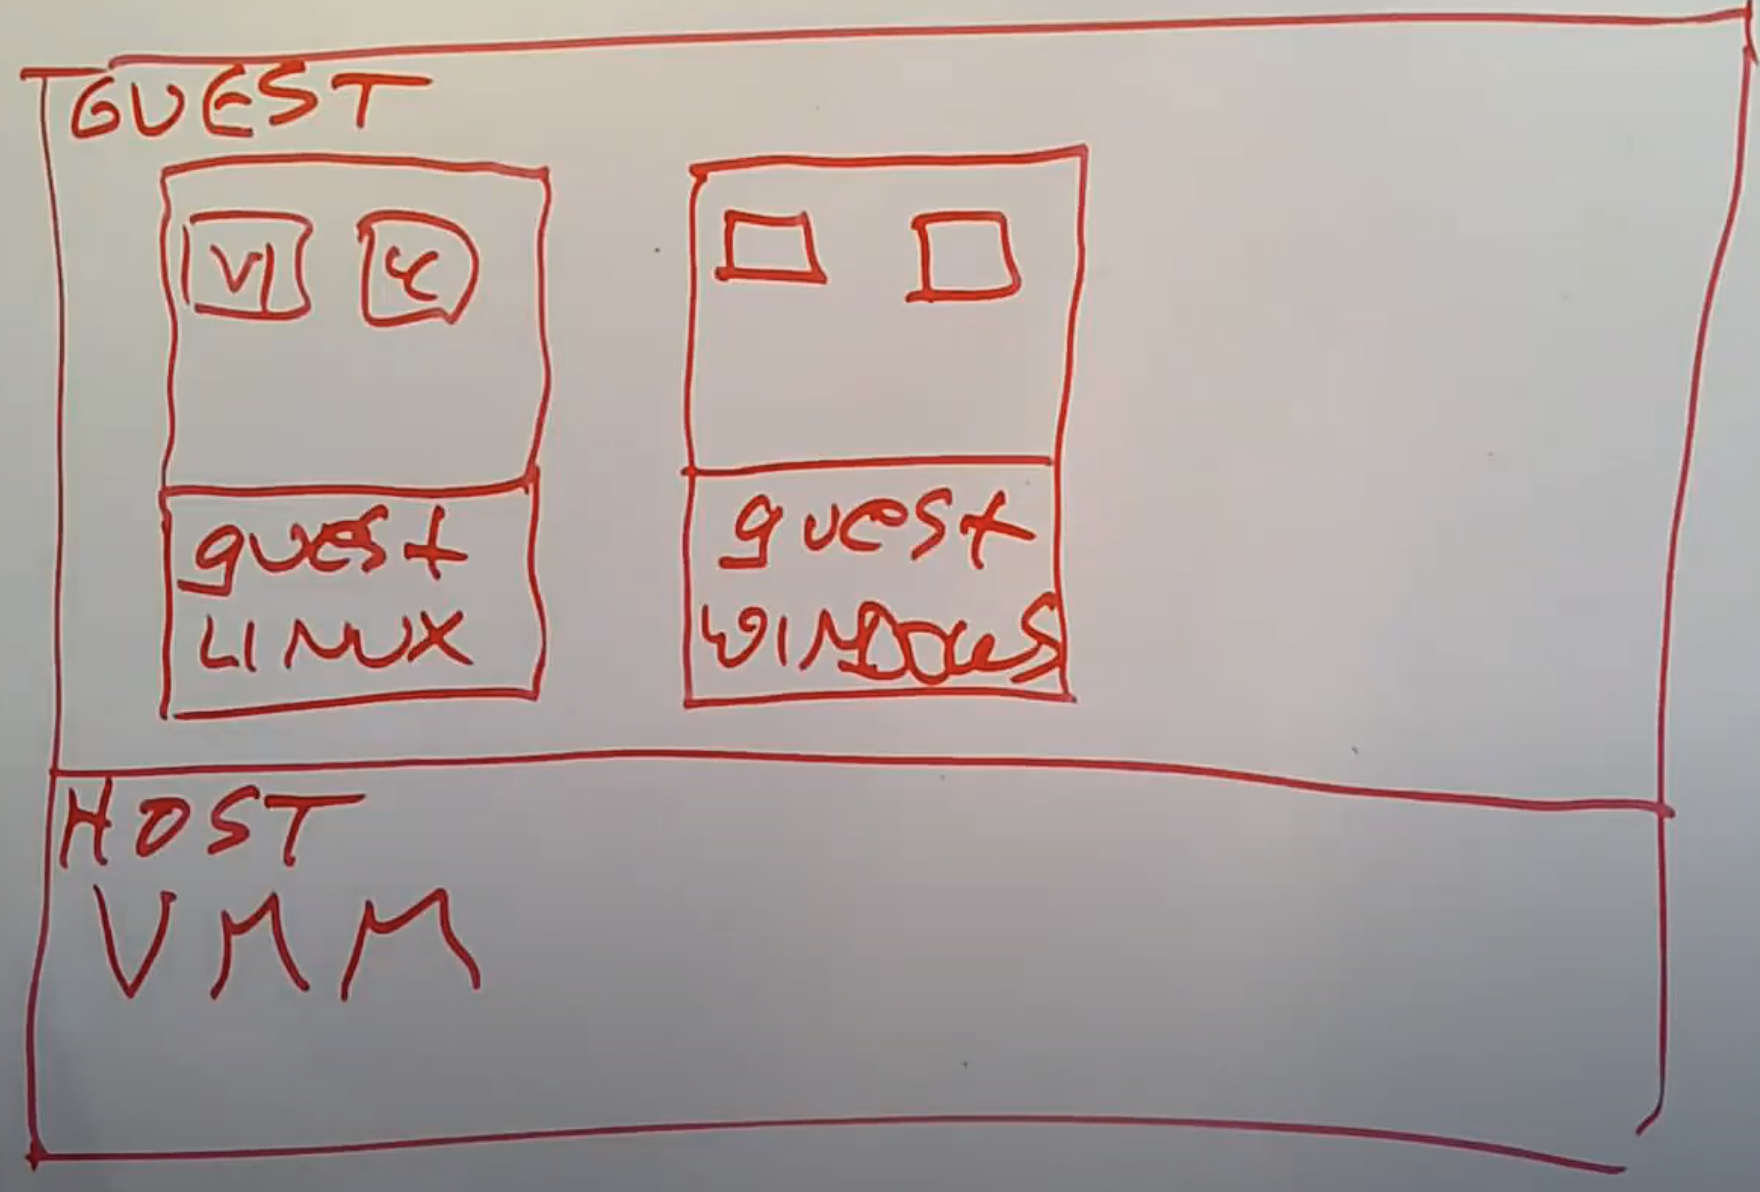 GUEST
VI
guest
LINUX
guest
WINDOWS
HOST
VMM